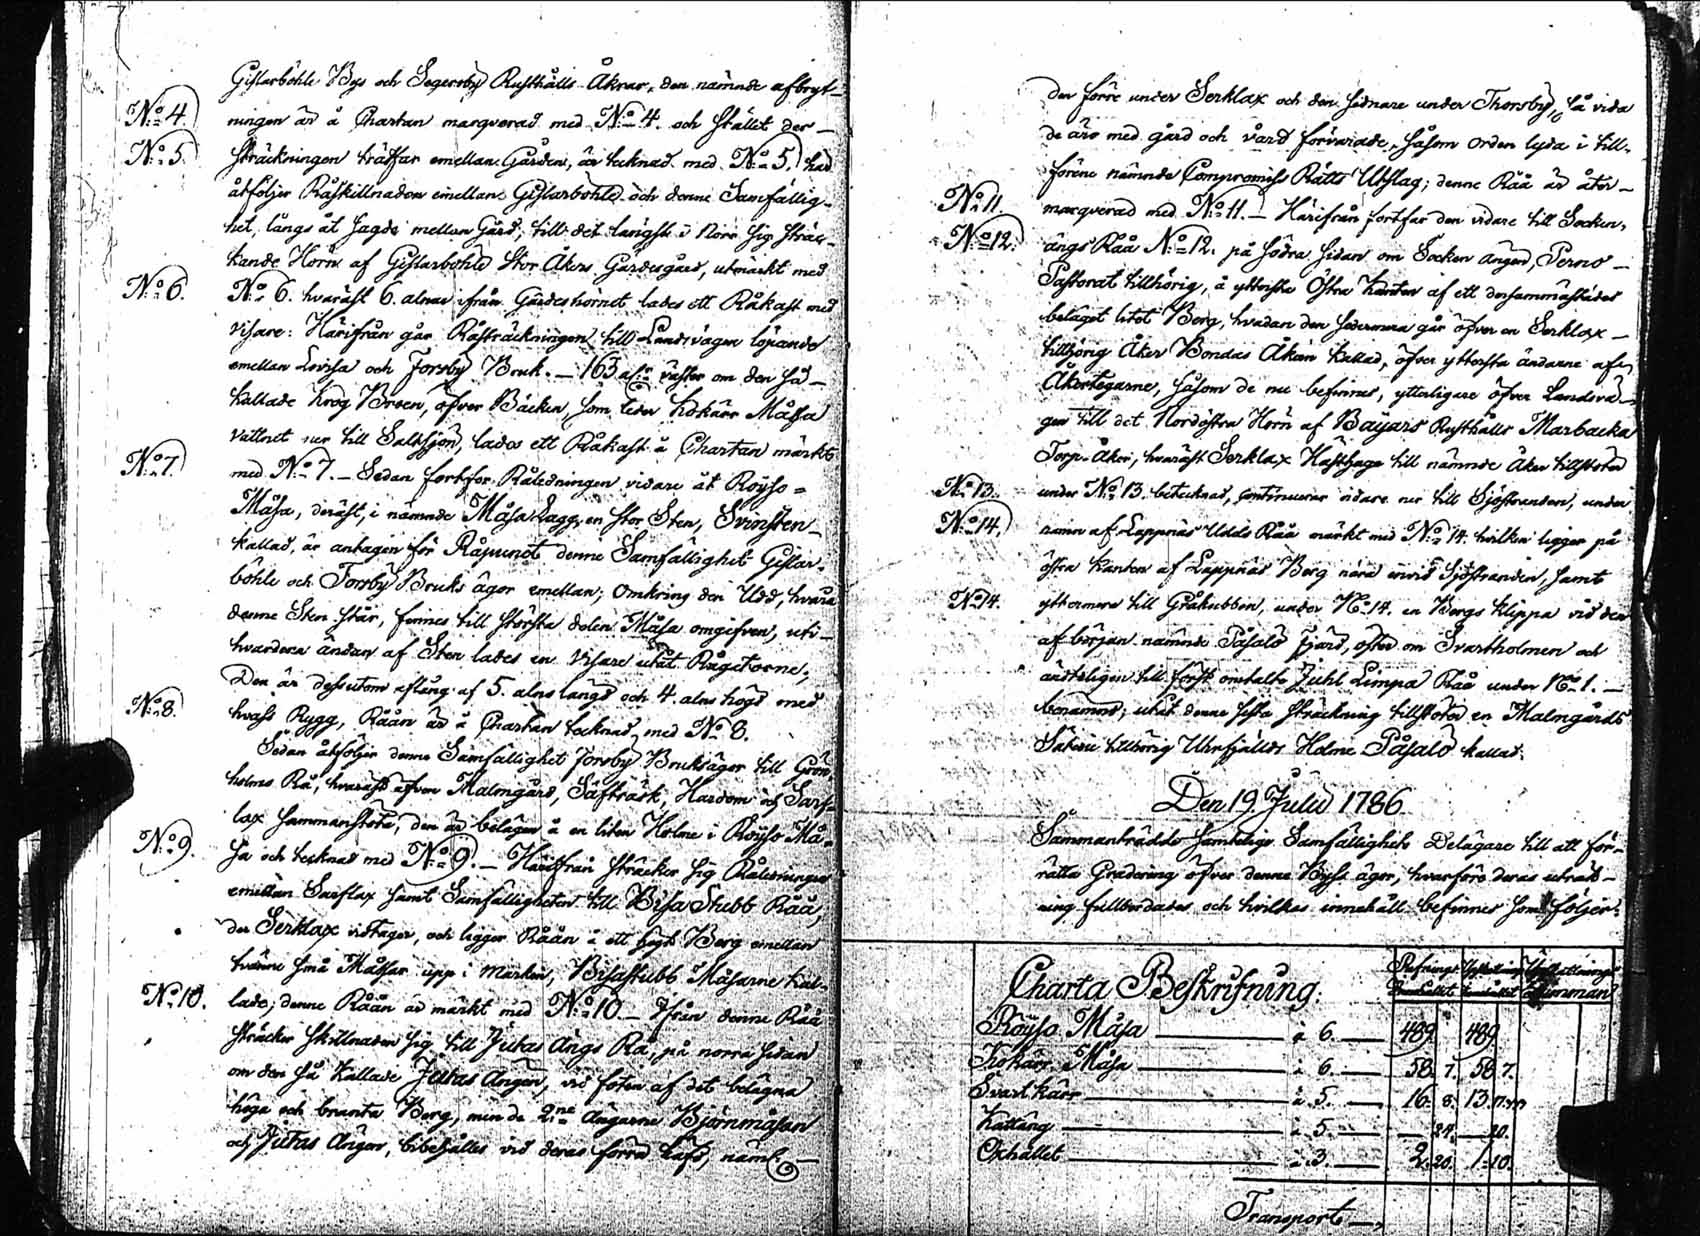 Gislarböhle Bys och Segersby Rusthålls Åkrar, den nämnde afbryt-
No 4. ningen är å Chartan marqverad med No 4. och stället der
No 5. sträckningen träffar emellan Gården, är tecknad med No 5. här
åtföljer Råskillnaden emellan Gislarböhle och denne Samfällig-
het, längs åt hagde mellan Gärd, till det längst i Norr sig sträc-
kande Hörn af Gislarböhle Stor Åkers Gärdesgård, utmärkt med
No 6. No 6. hvaräst 6. alnar ifrån Gärdeshörnet lades ett Råkast med
Visare: Härifrån går Råsträckningen till Landsvägen löpande
emellan Lovisa och Forsby Bruk. 163 alnr väster om den så
kallade Krog Broen, öfver Bäcken, som leder Kokärr Måssa
Vattnet ner till Saltsjön, lades ett Råkast å Chartan märkt
No 7. med No 7. Sedan fortfor Råledningen vidare åt Röysö
Måsa, deräst, i nämnde Måsa Lagg, en stor Sten, Svinsten
kallad, är antagen för Råpunct denne Samfällighet Gislar-
böhle och Forsby Bruks ägor emellan; Omkring den Udd, hvara
denne Sten står, finnes till största delen Måsa omgifven, uti
hvardera ändan af Sten lades en Visare utåt Rågetorne,
Den är dessutom aflång af 5. alns längd och 4. alns högd med
No 8. hvass Rygg, Råån är å Chartan tecknad med No 8.
Sedan åtföljer denne Samfällighet Forsby Bruks ägor till Grön
holms Rå, hvaräst äfven Malmgård, Säfträsk, Hardom och Sarf-
lax sammanstöta, den är belägen å en liten Holme i Röysö Må-
No 9. sa och tecknad med No 9. Härifrån sträcker sig Råledningen
emellan Sarflax samt Samfälligheten till Bisa Stubb Råå,
der Serklax vidtager, och ligger Råån å ett högt Berg emellan
tvänne små Måssar upp i marken, Bisastubb Måsarne kal-
No 10. lade; denne Råån är märkt med No 10. Ifrån denne Råå
sträcker skillnaden sig till Jutas Ängs Rå, på norra sidan
om den så kallade Jutas Ängen, vid foten af det belägna
höga och branta Berg, men de 2ne Ängarne Björnmåsan
och Jutas Ängar, bibehålles vid deras förra häfd, näml.
den förre under Serklax och den sednare under Thorsby, så vida
de äro med gård och vård förvarade, såsom orden lyda i till-
förene nämnde Compromiss Rätts Utslag; denne Råå är åter
No 11. marqverad med No 11. Härifrån fortfar den vidare till Socken,
No 12. ängs Råå No 12. på södra sidan om Socken ängen, Perno
Pastorat tillhörig, å yttersta Östra kanten af ett dersammastädes
beläget litet Berg, hvadan den sedermera går öfver en Serklax
tillhörig Åker Bondas Åkan kallad, öfver yttersta ändarne af
Åkertegarne, såsom de nu befinnes, ytterligare öfver Landsvä-
gen till det Nordöstra Hörn af Bayars Rusthålls Marbacka
Torp Åker, hvaräst Serklax Hästhage till nämnde Åker tillstöter
No 13. under No 13. betecknad, continuerar vidare ner till Sjöstranden, under
No 14. namn af Lappnäs Udds Råå märkt med No 14. hvilken ligger på
östra kanten af Lappnäs Berg nära invid Sjöstranden, samt
No 14. yttermera till Gråkubben, under No 14. en Bergs klippa vid den
af början nämnde Påsalö fjärd, öster om Svartholmen och
ändteligen till först omtalte Juhl Limpa Råå under No 1.
benämnd; utåt denne sista sträckning tillstöter en Malmgårds
Säteri tillhörig Uhrfjälls Holme Påsalö kallad.
Den 19. Julii 1786.
Sammanträdde samtelige Samfällighets Delägare till att för-
rätta Gradering öfver denne Byss ägor, hvarföre deras uträk-
ning fullbordades och hvilkas innehåll befinnes som följer.
Charta Beskrifning.
Röysö Måsa à 6. 489. 489.
Kokärr Måsa à 6. 58. 7. 58 7.
Svartkärr à 5. 16. 8. 13.
Kattäng à 5 24. 20.
Oxhallet à 3. 2. 20. 1. 10.
Transport